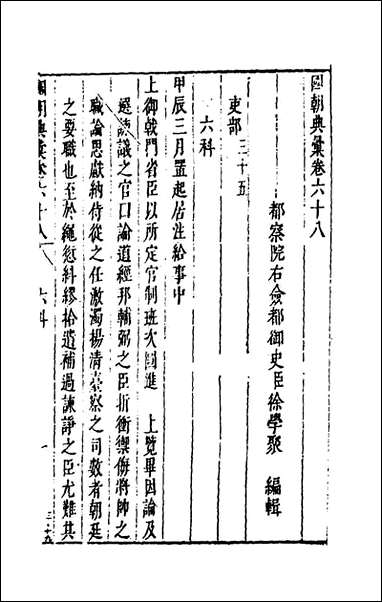 國朝典彙卷六十八
都察院右僉都御史臣徐學聚 編輯
吏部三十五
六科
甲辰三月置起居注給事中
上御戟門省臣以所定官制班次圖進 上覽畢因論及
遴諫議之官曰論道經邦輔弼之臣折衝禦侮將帥之
職論思獻納侍從之任激濁揚清臺察之司數者朝廷
之要職也至於繩愆糾繆拾遺補過諫諍之臣尤難其
國朝典彙 卷六十八 六科 一